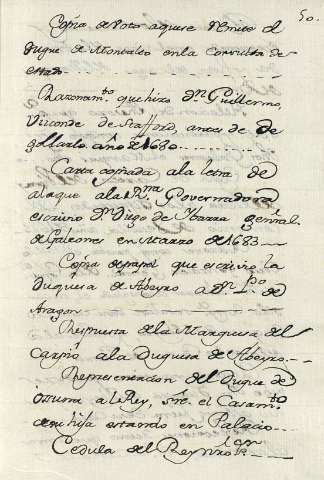 50.
Copia de Voto aque se remite el
Duque de Montalto en la Consulta de
estado
Razonam.to que hizo D.n Guillermo
Visconde de Stafford, antes de de
gollarlo año de 1680
Carta copiada ala letra de
ala R.na Governadora
escrivio D.n Diego de Ybarra gen.ral
de Galeones en Marzo de 1683
Copia de papel que escrivio la
Duquesa de Abeyro a D.n P.o de
Aragon
Respuesta de la Marquesa del
Carpio ala Duquesa de Abeyro.
Representacion del Duque de
Ossuna al Rey, sre. el Casam.to
de su hija estando en Palacio
Cedula del Rey nro